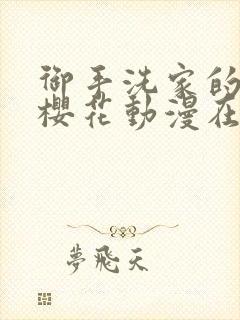 御手洗家的
櫻花動漫在
夢飛天